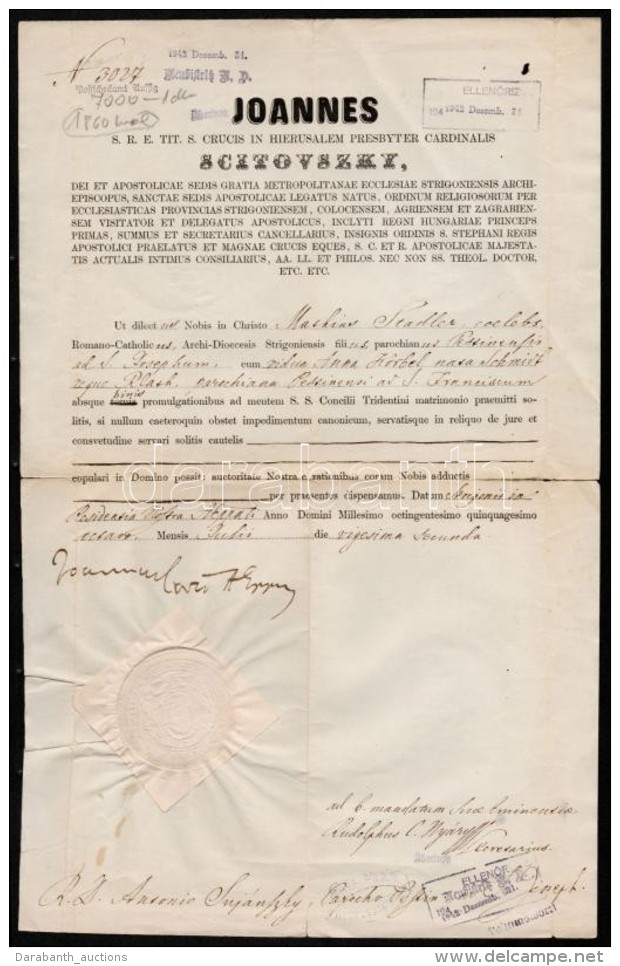 N 3027
1942 Dezemb. 31.
7000-1
1860
ELLENŐRIZ
194 1942 Dezemb. 31.
JOANNES
S. R. E. TIT. S. CRUCIS IN HIERUSALEM PRESBYTER CARDINALIS
SCITOVSZKY,
DEI ET APOSTOLICAE SEDIS GRATIA METROPOLITANAE ECCLESIAE STRIGONIENSIS ARCHI-
EPISCOPUS, SANCTAE SEDIS APOSTOLICAE LEGATUS NATUS, ORDINUM RELIGIOSORUM PER
ECCLESIASTICAS PROVINCIAS STRIGONIENSEM, COLOCENSEM, AGRIENSEM ET ZAGRABIEN-
SEM VISITATOR ET DELEGATUS APOSTOLICUS, INCLYTI REGNI HUNGARIAE PRINCEPS
PRIMAS, SUMMUS ET SECRETARIUS CANCELLARIUS, INSIGNIS ORDINIS S. STEPHANI REGIS
APOSTOLICI PRAELATUS ET MAGNAE CRUCIS EQUES, S. C. ET R. APOSTOLICAE MAJESTA-
TIS ACTUALIS INTIMUS CONSILIARIUS, AA. LL. ET PHILOS. NEC NON SS. THEOL. DOCTOR,
ETC. ETC.
Ut dilectus Nobis in Christo Mathias Stadler, coelebs,
Romano-Catholicus, Archi-Dioecesis Strigoniensis filius parochianus Pestinensis
ad S. Josephum, cum vidua Anna Hörbel nata Schmidt
aeque R. Cath. parochiana Pestinensi ad S. Franciscum
absque binis promulgationibus ad mentem S. S. Concilii Tridentini matrimonio praemitti so-
litis, si nullum caeteroquin obstet impedimentum canonicum, servatisque in reliquo de jure et
consvetudine servari solitis cautelis
copulari in Domino possit: auctoritate Nostra e rationibus coram Nobis adductis
per praesentes dispensamus. Datum Strigonii in
Residentia Nostra Anno Domini Millesimo octingentesimo quinquagesimo
octavo Mensis Julii die vigesima secunda
Joannes Card. A Eppus
ad E. mandatum Suae Eminentiae
Rudolphus C. Nyáry
Secretarius
ELLENŐR
1942 Dezemb. 31.
R. D. Antonio Szjánszky, Parocho Pestin Joseph.
darabanth
Darabanth_auctions
delcampe.net